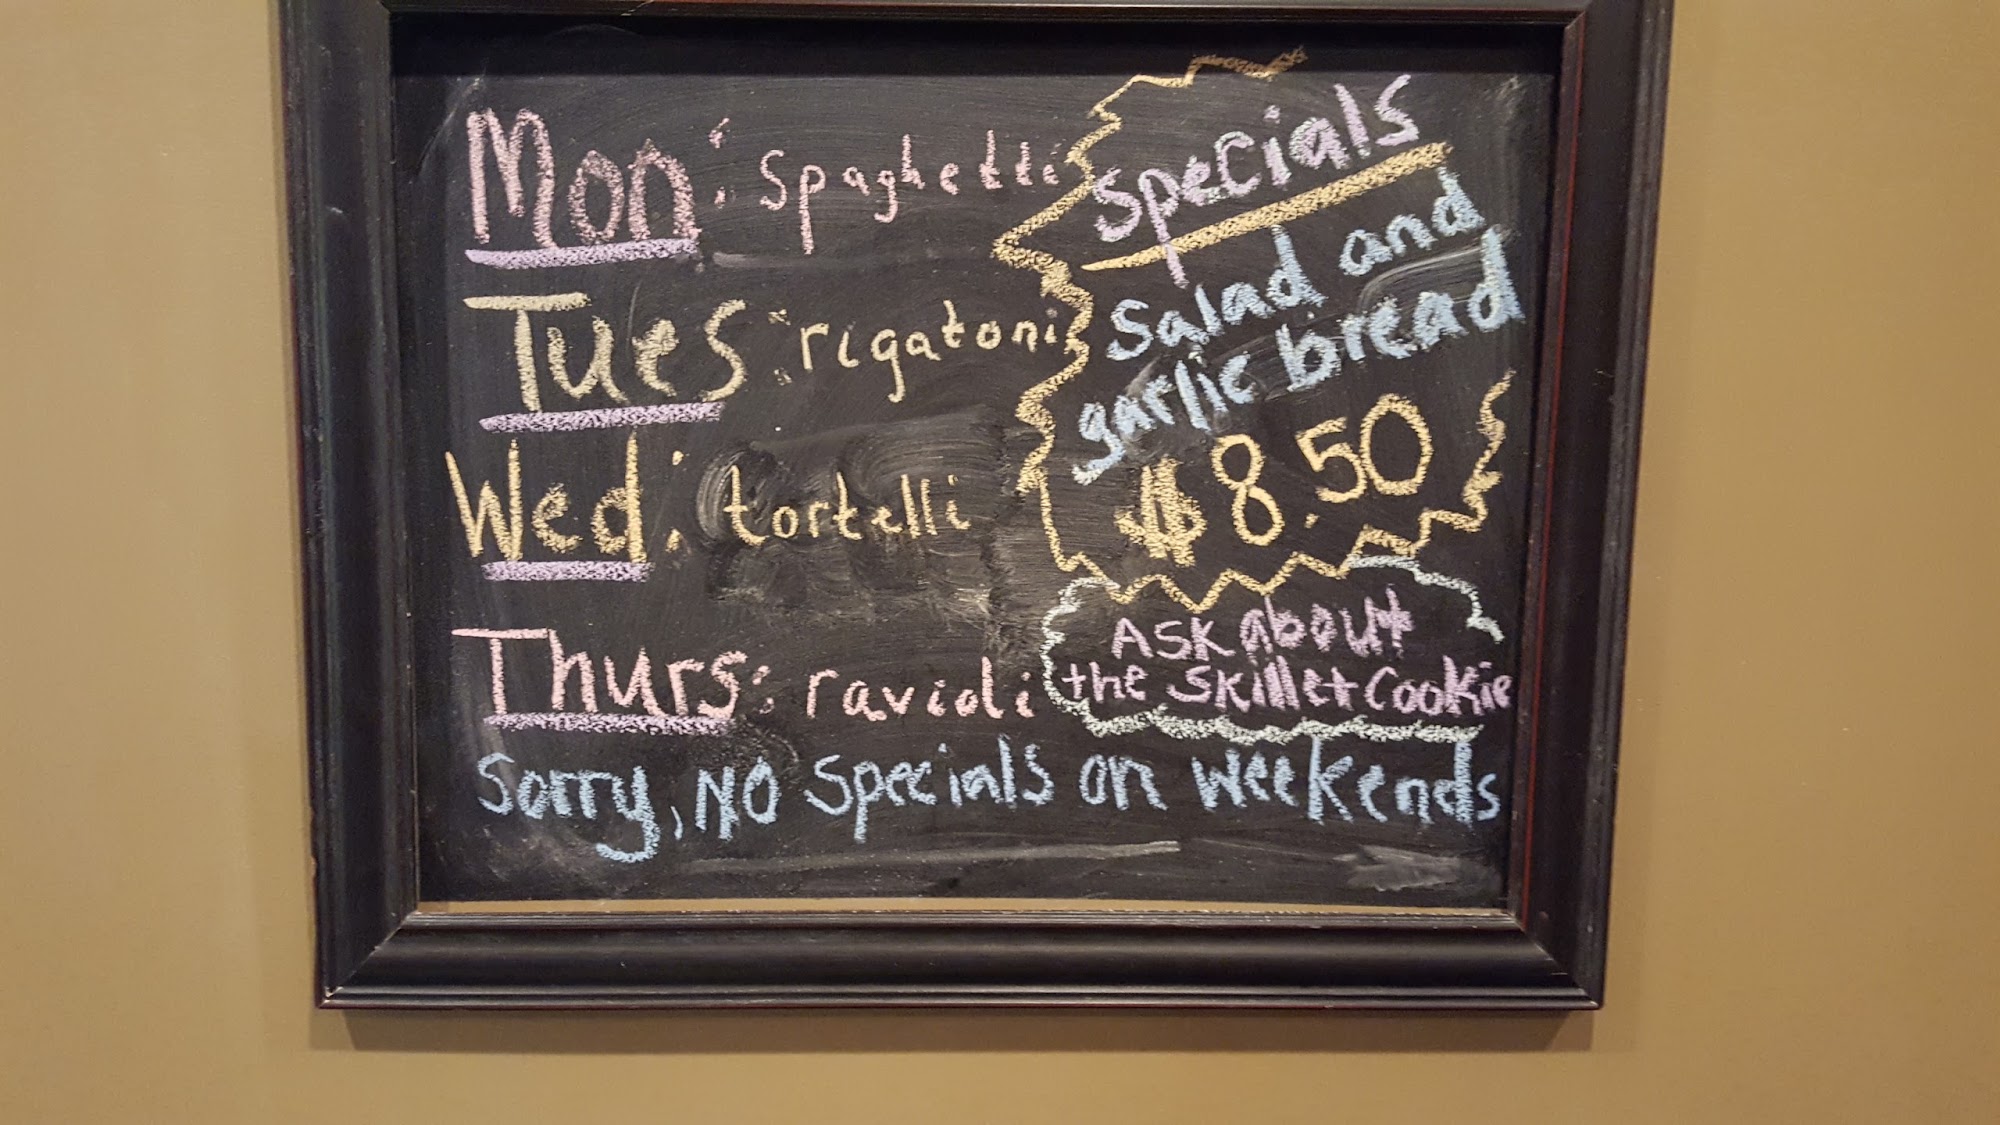 Mon: spaghetti
Tues: rigatoni
Wed: tortelli
Thurs: ravioli
Sorry, NO Specials on weekends
Specials
Salad and
garlic bread
$8.50
Ask about
the Skillet Cookie